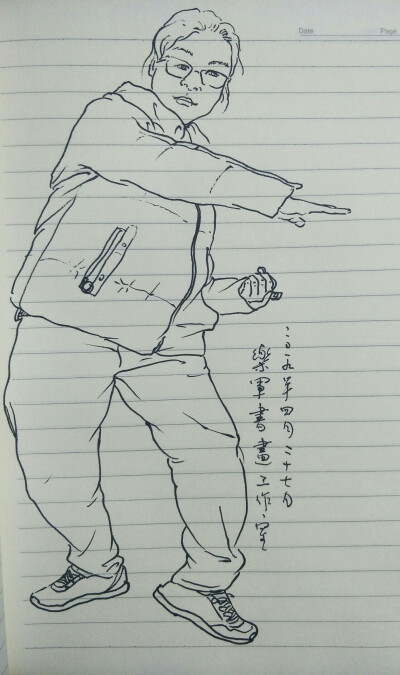 Date
Page
二〇一九年四月二十七日
樂軍書畫工作室